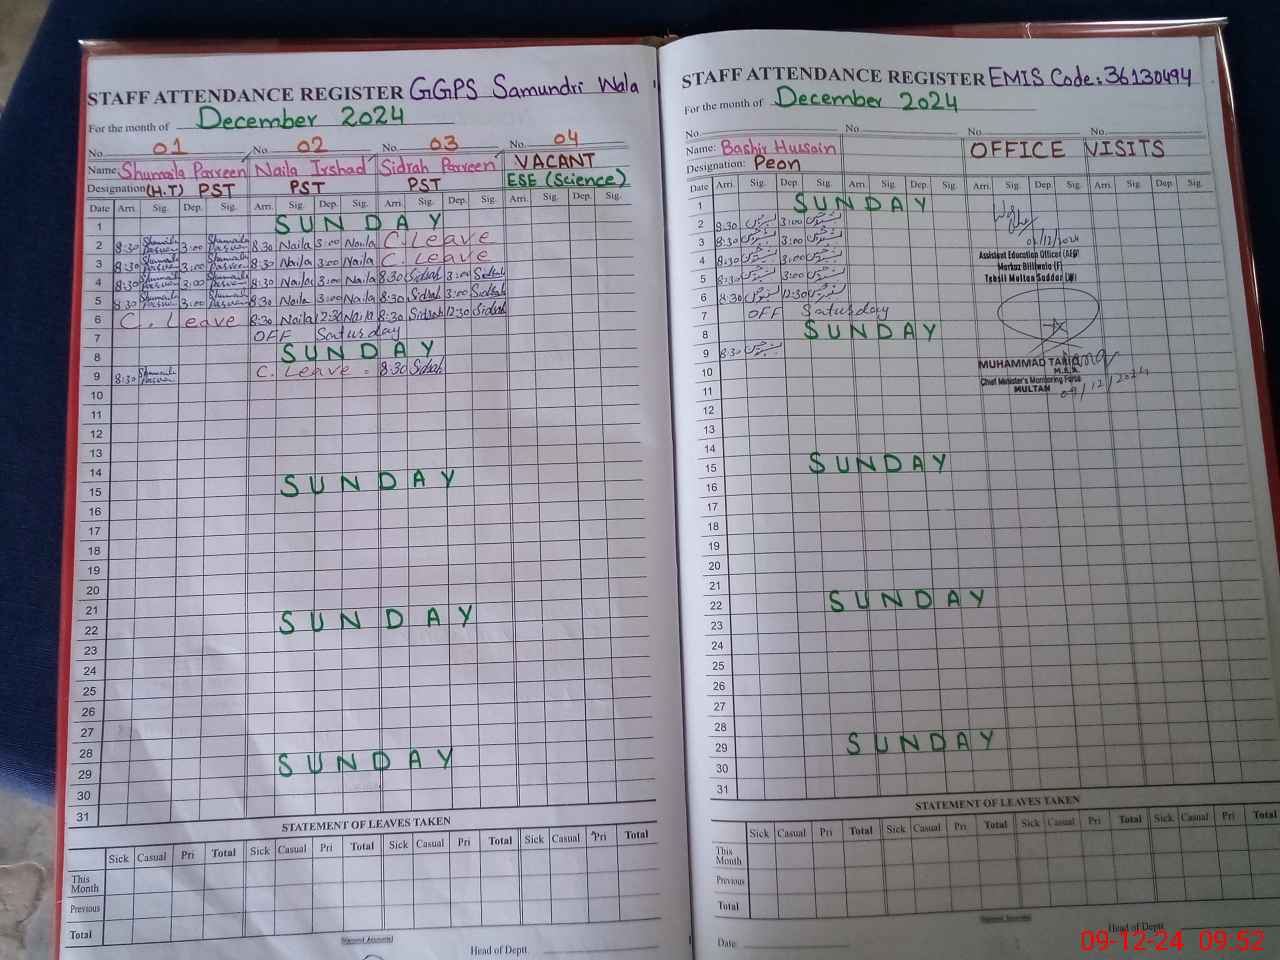 STAFF ATTENDANCE REGISTER GGPS Samundri Wala
For the month of December 2024
No. 01 No. 02 No. 03 No. 04
Name: Shumaila Parveen Naila Irshad Sidrah Parveen VACANT
Designation: (H.T) PST PST PST ESE (Science)
Date Arri. Sig. Dep. Sig. Arri. Sig. Dep. Sig. Arri. Sig. Dep. Sig. Arri. Sig. Dep. Sig.
1 SUNDAY
2 8:30 Shumaila Parveen 3:00 Shumaila Parveen 8:30 Naila 3:00 Naila C. Leave
3 8:30 Shumaila Parveen 3:00 Shumaila Parveen 8:30 Naila 3:00 Naila C. Leave
4 8:30 Shumaila Parveen 3:00 Shumaila Parveen 8:30 Naila 3:00 Naila 8:30 Sidrah 3:00 Sidrah
5 8:30 Shumaila Parveen 3:00 Shumaila Parveen 8:30 Naila 3:00 Naila 8:30 Sidrah 3:00 Sidrah
6 C. Leave 8:30 Naila 12:30 Naila 8:30 Sidrah 12:30 Sidrah
7 OFF Saturday
8 SUNDAY
9 8:30 Shumaila Parveen C. Leave. 8:30 Sidrah
10
11
12
13
14
15 SUNDAY
16
17
18
19
20
21
22 SUNDAY
23
24
25
26
27
28
29 SUNDAY
30
31
STATEMENT OF LEAVES TAKEN
Sick Casual Pri Total Sick Casual Pri Total Sick Casual Pri Total Sick Casual Pri Total
This Month
Previous
Total
Head of Deptt.
STAFF ATTENDANCE REGISTER EMIS Code: 36130494
For the month of December 2024
No. No. No. No.
Name: Bashir Hussain OFFICE VISITS
Designation: Peon
Date Arri. Sig. Dep. Sig. Arri. Sig. Dep. Sig. Arri. Sig. Dep. Sig. Arri. Sig. Dep. Sig.
1 SUNDAY
2 8:30 3:00
3 8:30 3:00
4 8:30 3:00
5 8:30 3:00
6 8:30 12:30
7 OFF Saturday
8 SUNDAY
9 8:30
10
11
12
13
14
15 SUNDAY
16
17
18
19
20
21
22 SUNDAY
23
24
25
26
27
28
29 SUNDAY
30
31
/12/2024
Assistant Education Officer (AEO)
Markaz Billiwala (F)
Tehsil Multan Saddar (W)
MUHAMMAD TARIQ
Chief Minister's Monitoring Force
MULTAN
09/12/2024
STATEMENT OF LEAVES TAKEN
Sick Casual Pri Total Sick Casual Pri Total Sick Casual Pri Total Sick Casual Pri Total
This Month
Previous
Total
Date:
Head of Deptt.
09-12-24 09:52